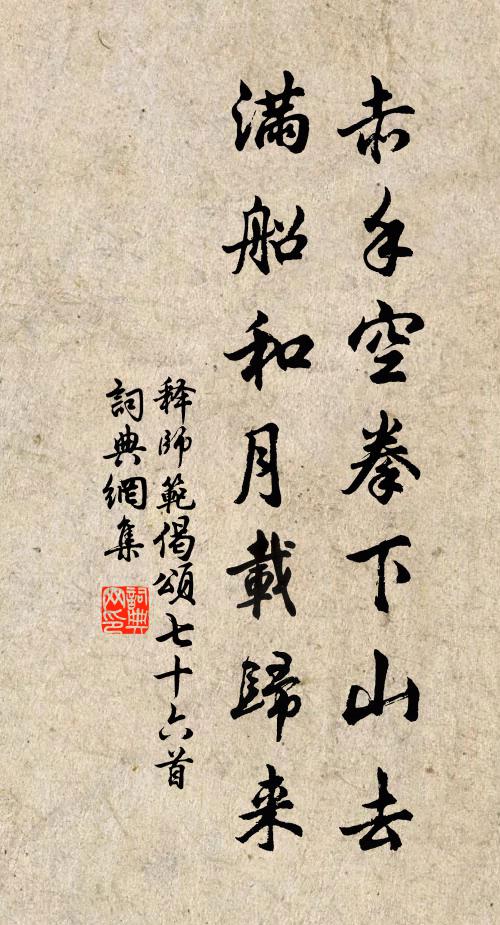 赤手空拳下山去
满船和月載歸来
释师範偈頌七十六首
詞典網集
詞典